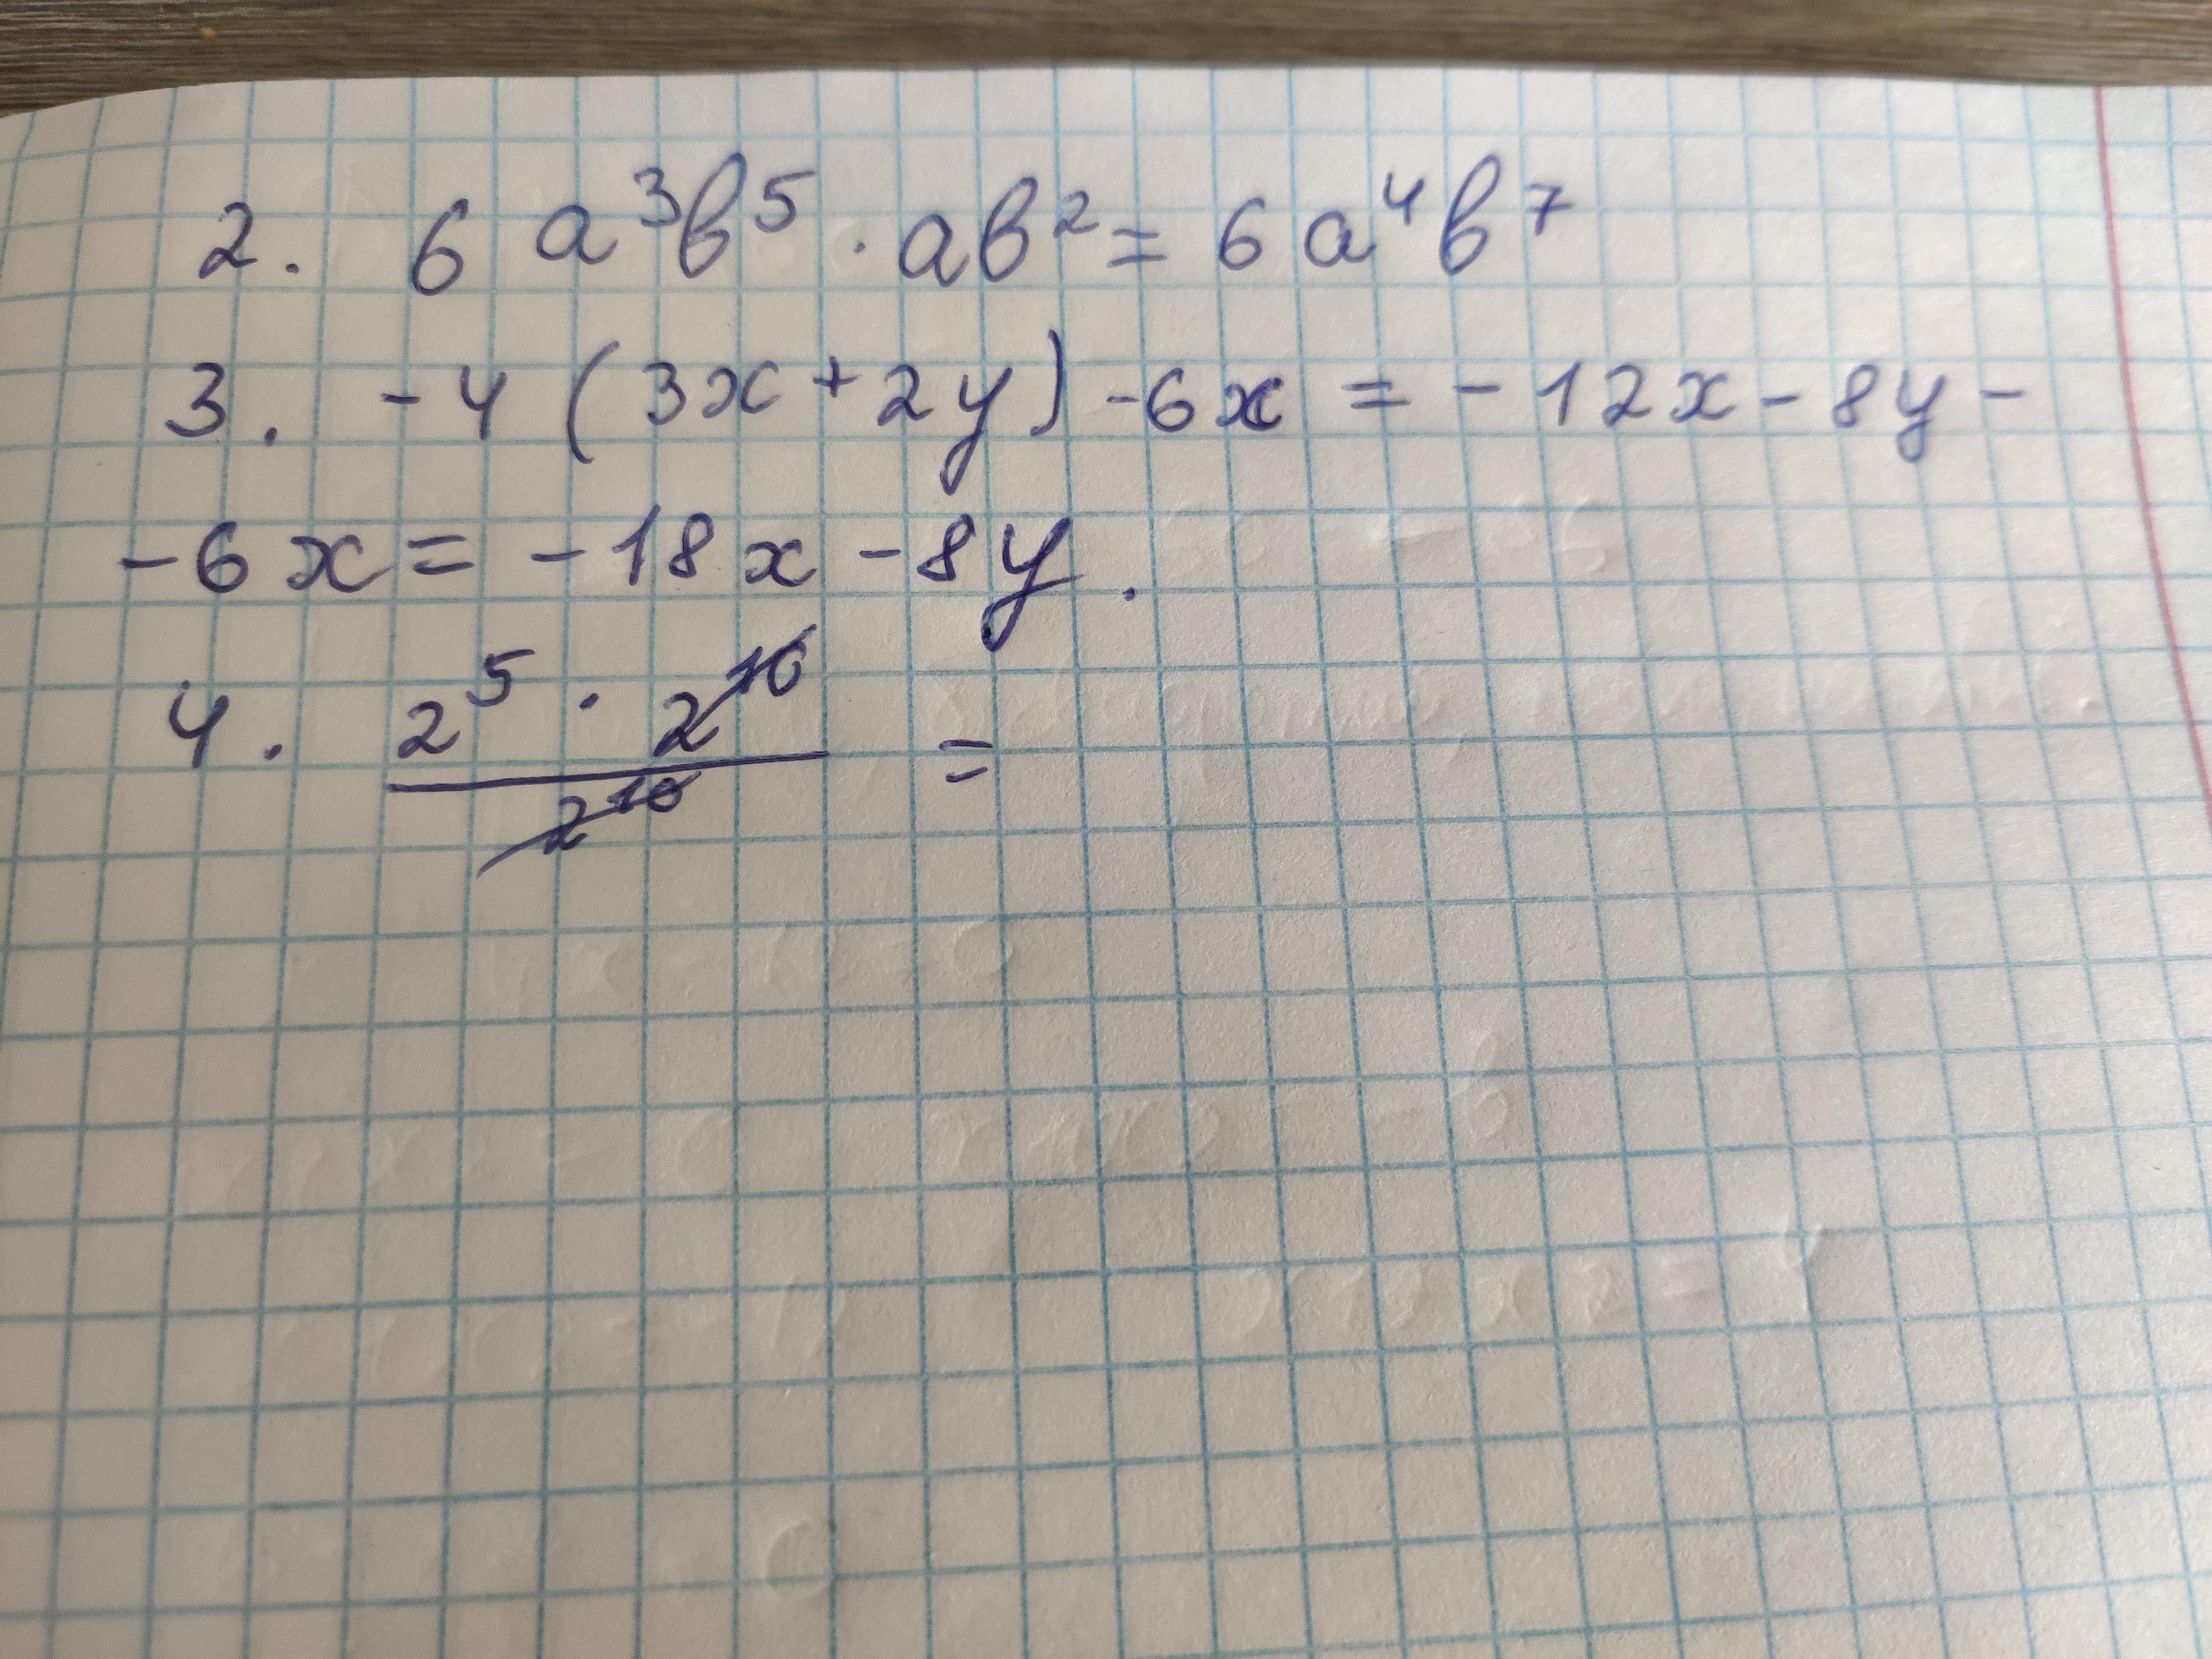 2. 6 a³b⁵ · ab² = 6 a⁴b⁷
3. -4 (3x + 2y) - 6x = - 12x - 8y -
- 6x = - 18x - 8y.
4. (2⁵ · 2¹⁰) / 2¹⁰ =